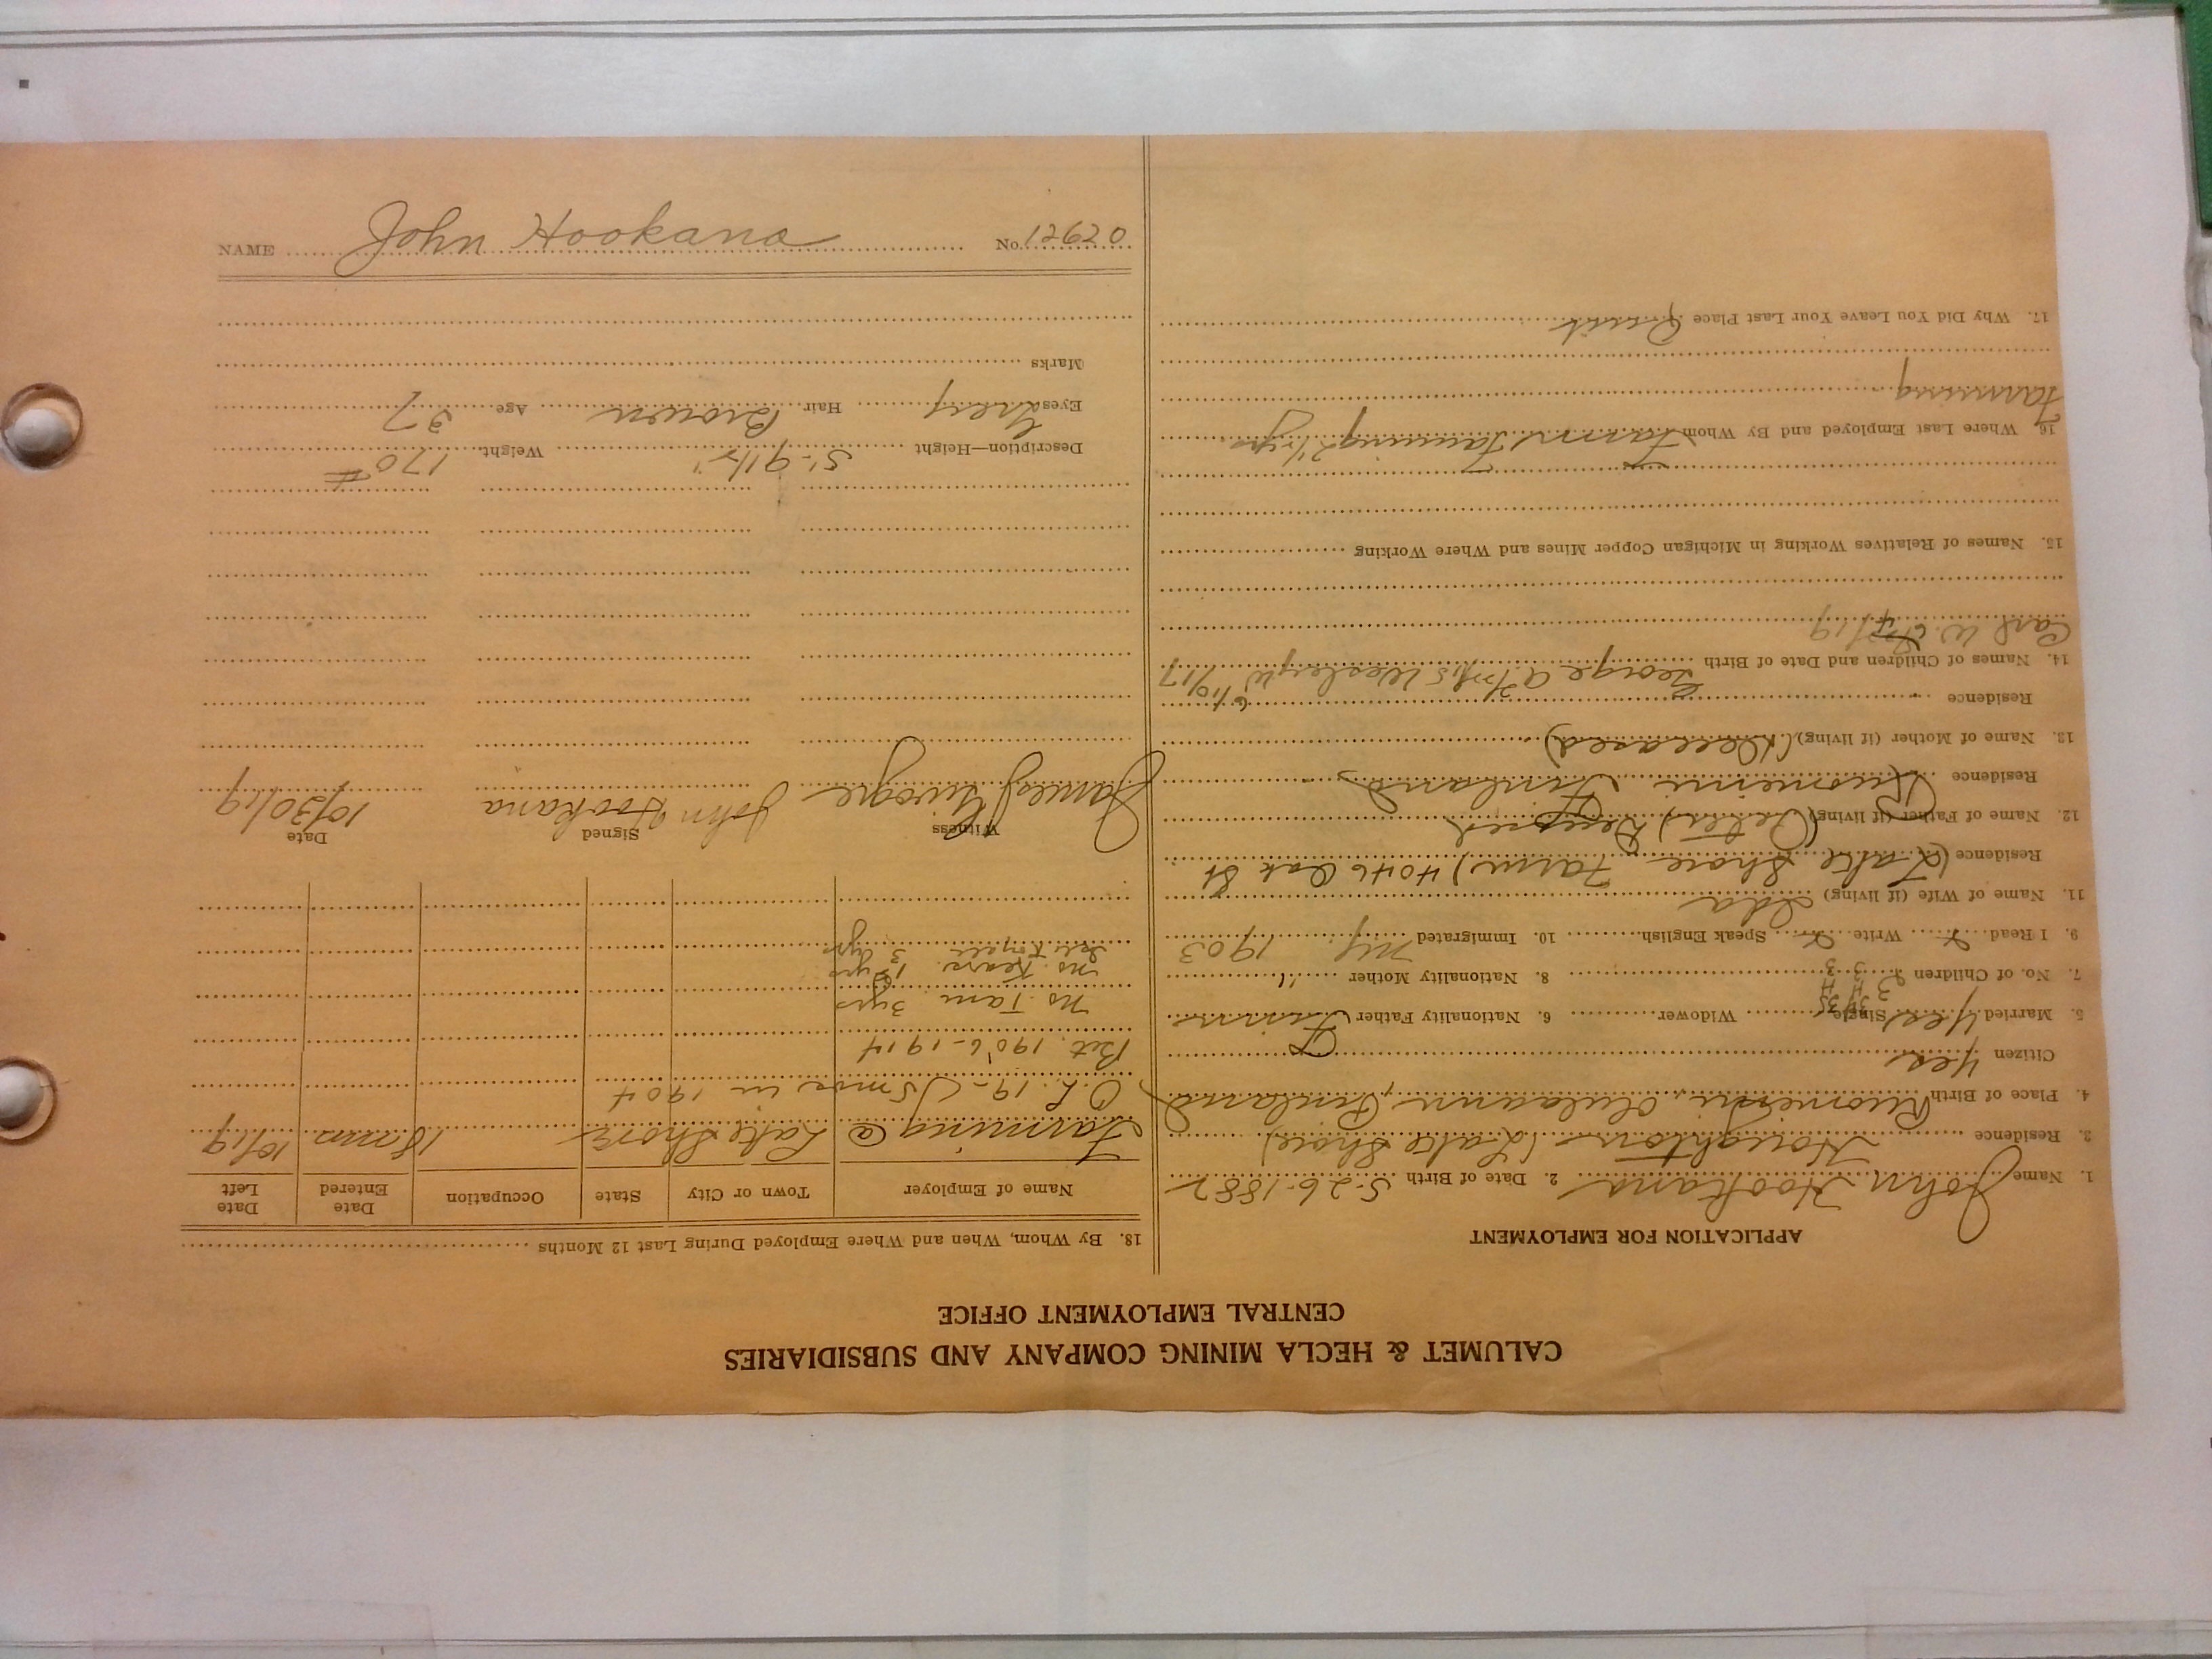 CALUMET & HECLA MINING COMPANY AND SUBSIDIARIES
CENTRAL EMPLOYMENT OFFICE
APPLICATION FOR EMPLOYMENT
1. Name John Hookana 2. Date of Birth 5-26-1882
3. Residence Houghton (Lake Shore)
4. Place of Birth Oulaann, Finland
Citizen Yes
5. Married Yes Single Widower 6. Nationality Father Finn
7. No. of Children 3 8. Nationality Mother "
9. I Read Write Speak English 10. Immigrated My 1903
11. Name of Wife (if living) Ida
Residence (Lake Shore Farm) 4046 Oak St
12. Name of Father (if living) (Peter)
Residence Finland
13. Name of Mother (if living) (Deceased)
Residence
14. Names of Children and Date of Birth George Wesley W 6/10/17
Carl W. /19
15. Names of Relatives Working in Michigan Copper Mines and Where Working
16. Where Last Employed and By Whom Farm Farming
Farming
17. Why Did You Leave Your Last Place Quit
18. By Whom, When and Where Employed During Last 12 Months
Name of Employer Town or City State Occupation Date Entered Date Left
Farming @ Lake Shore 18 mos 10/19
C.L. 19- 5 mos in 1904
Bet. 1906-1914
No. Tam. 3 yrs
No. Kears. 1 yrs
Isle Royale 3 yrs
Witness Signed Date
James John Hookana 10/30/19
Description—Height 5'-9 1/2" Weight 170#
Eyes Grey Hair Brown Age 37
Marks
NAME John Hookana No. 12620